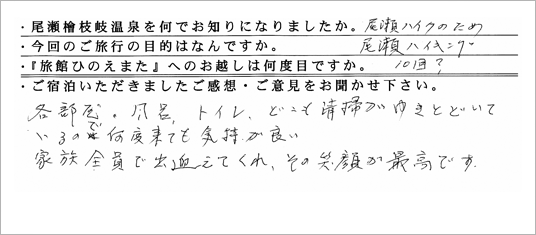 ・尾瀬檜枝岐温泉を何でお知りになりましたか。尾瀬ハイクのため
・今回のご旅行の目的はなんですか。 尾瀬ハイキング
・『旅館ひのえまた』へのお越しは何度目ですか。 10回?
・ご宿泊いただきましたご感想・ご意見をお聞かせ下さい。
各部屋・風呂、トイレ、どこも清掃がゆきとどいて
いるので何度来ても気持が良い
家族全員で出迎えてくれ、その笑顔が最高です